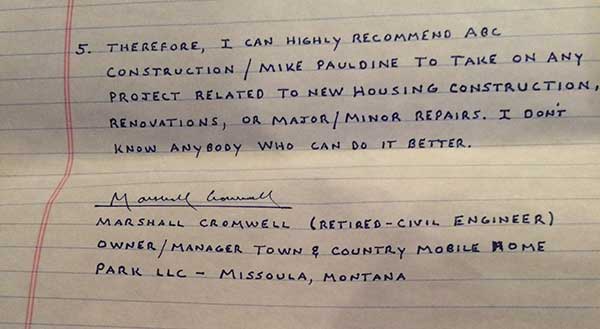 5. THEREFORE, I CAN HIGHLY RECOMMEND ABC
CONSTRUCTION/MIKE PAULDINE TO TAKE ON ANY
PROJECT RELATED TO NEW HOUSING CONSTRUCTION,
RENOVATIONS, OR MAJOR/MINOR REPAIRS. I DON'T
KNOW ANYBODY WHO CAN DO IT BETTER.
Marshall Cromwell
MARSHALL CROMWELL (RETIRED-CIVIL ENGINEER)
OWNER/MANAGER TOWN & COUNTRY MOBILE HOME
PARK LLC - MISSOULA, MONTANA